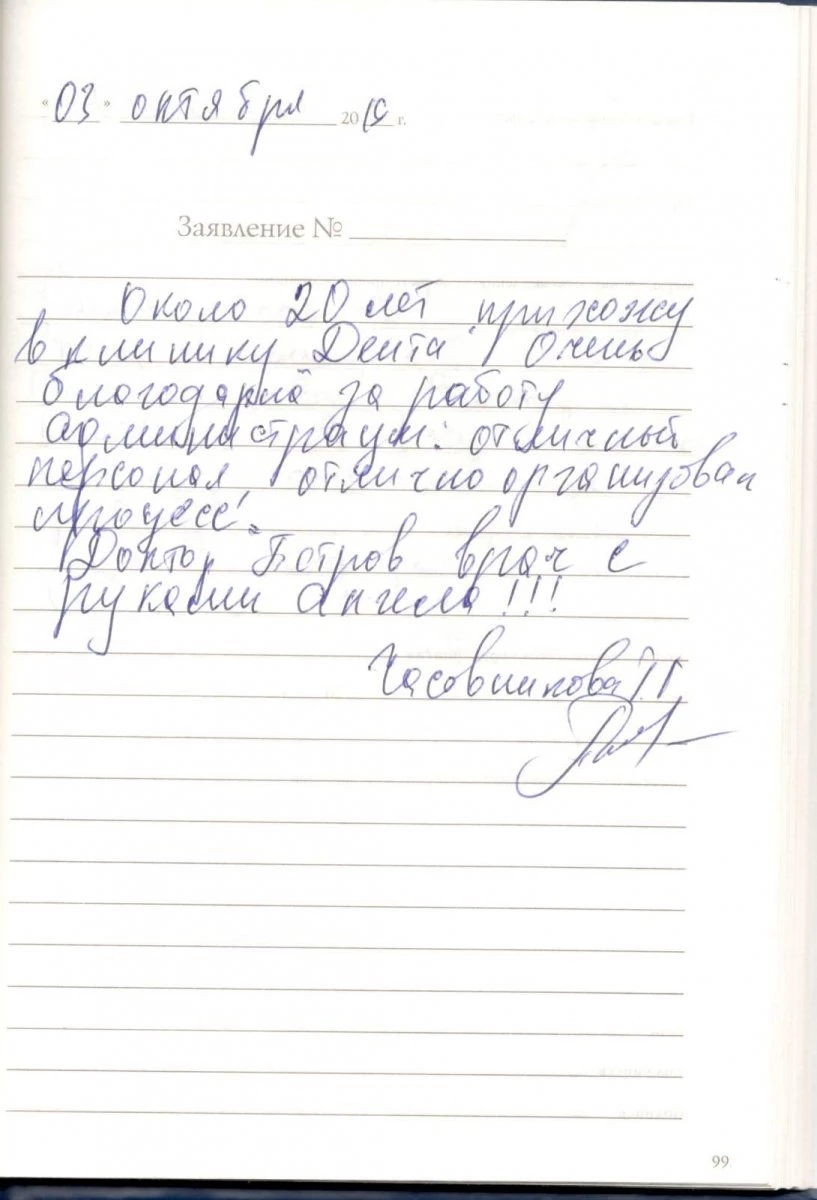 «03» октября 2019 г.
Заявление №
Около 20 лет прихожу
в клинику Дента. Очень
благодарна за работу
администрации: отличный
персонал, отлично организован
процесс.
Доктор Петров врач с
руками ангела!!!
Часовникова Т.Г.
99